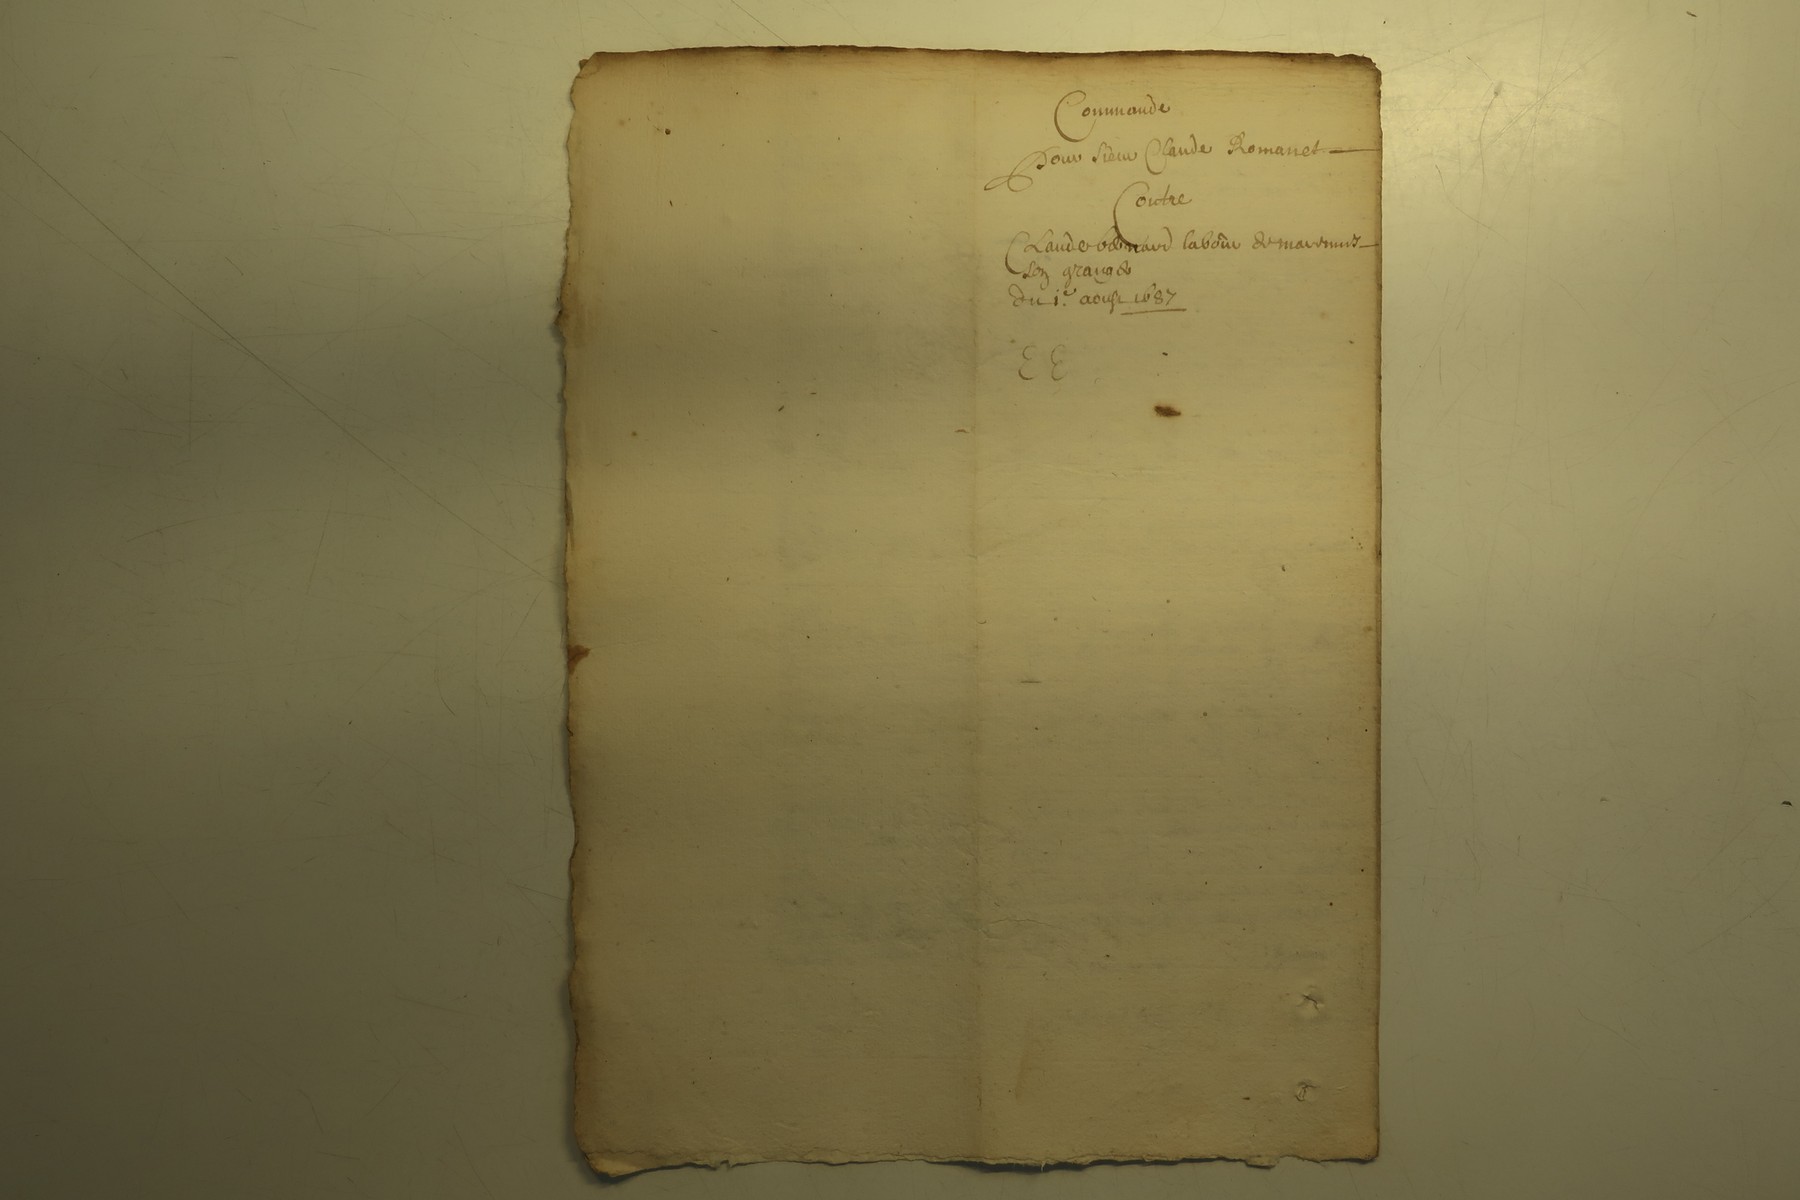 Commande
Pour sieur Claude Romanet
Contre
Claude bernard labour de
son granger
du 1.er aoust 1687
E E